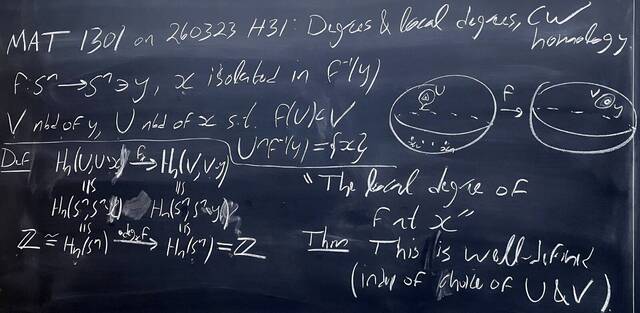 MAT 1301 on 260323 H31: Degrees & local degrees, CW homology
F: Sⁿ → Sⁿ ∋ y, x isolated in f⁻¹(y)
V nbd of y, U nbd of x s.t. f(U)⊂V
U∩f⁻¹(y) = {x}
Def Hₙ(U, U-x) → Hₙ(V, V-y)
Hₙ(Sⁿ, Sⁿ-x) Hₙ(Sⁿ, Sⁿ-y)
Z ≅ Hₙ(Sⁿ) → Hₙ(Sⁿ) = Z
"The local degree of
F at x"
Thm This is well-defined
(indep of choice of U & V)
U
F
V
y